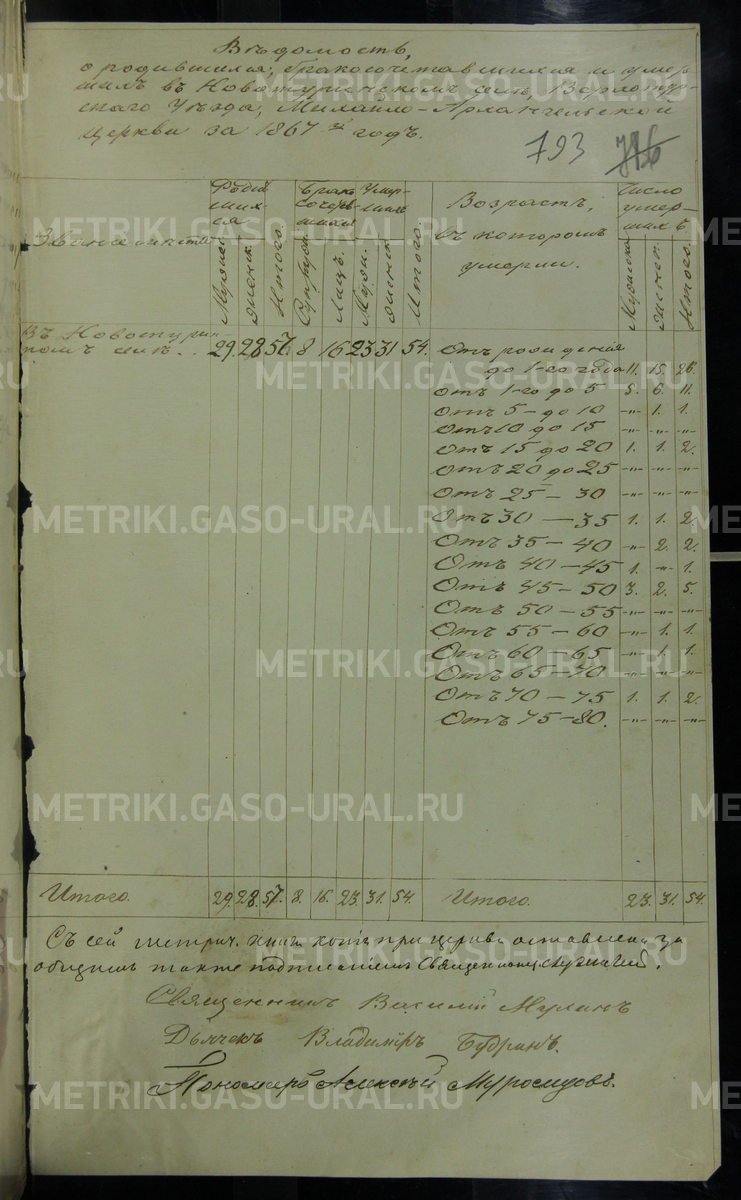 Вѣдомость,
о родившихся, бракосочетавшихся и умер-
шихъ въ Новотуринскомъ селѣ, Верхотур-
скаго Уѣзда, Михайло-Архангельской
церкви за 1867й годъ.
793
Званіе и мѣсто
Роди
вших
ся
Брако
сочетав
шихся
Умер-
шихъ
Итого.
Возрастъ,
въ которомъ
умерли.
Число
умер-
шихъ.
Мужеск.
Женск.
Итого.
Супруж.
Лицъ.
Муж.
Женск.
Мужеска
Женск.
Итого.
Въ Новотурин
комъ селѣ. . 29. 28. 57. 8. 16. 23. 31. 54.
Отъ рожденія
до 1-го года 11. 15. 26.
Отъ 1-го до 5 5. 6. 11.
Отъ 5-до 10 -"- 1. 1.
Отъ 10 до 15 -"- -"- -"-
Отъ 15 до 20 1. 1. 2.
Отъ 20 до 25 -"- -"- -"-
Отъ 25 - 30 -"- -"- -"-
Отъ 30 — 35 1. 1. 2.
Отъ 35 - 40 -"- 2. 2.
Отъ 40 - 45 1. -"- 1.
Отъ 45 - 50 3. 2. 5.
Отъ 50 - 55 -"- -"- -"-
Отъ 55 - 60 -"- 1. 1.
Отъ 60 - 65 -"- 1. 1.
Отъ 65 - 70 -"- -"- -"-
Отъ 70 - 75 1. 1. 2.
Отъ 75 - 80. -"- -"- -"-
Итого. 29. 28. 57. 8. 16. 23. 31. 54. Итого. 23. 31. 54.
Съ сей метрич. книги копія при церкви оставлена за
общимъ подписаніемъ
Священникъ Василій
Дьячекъ Владиміръ
Пономарь Алексѣй
METRIKI.GASO-URAL.RU